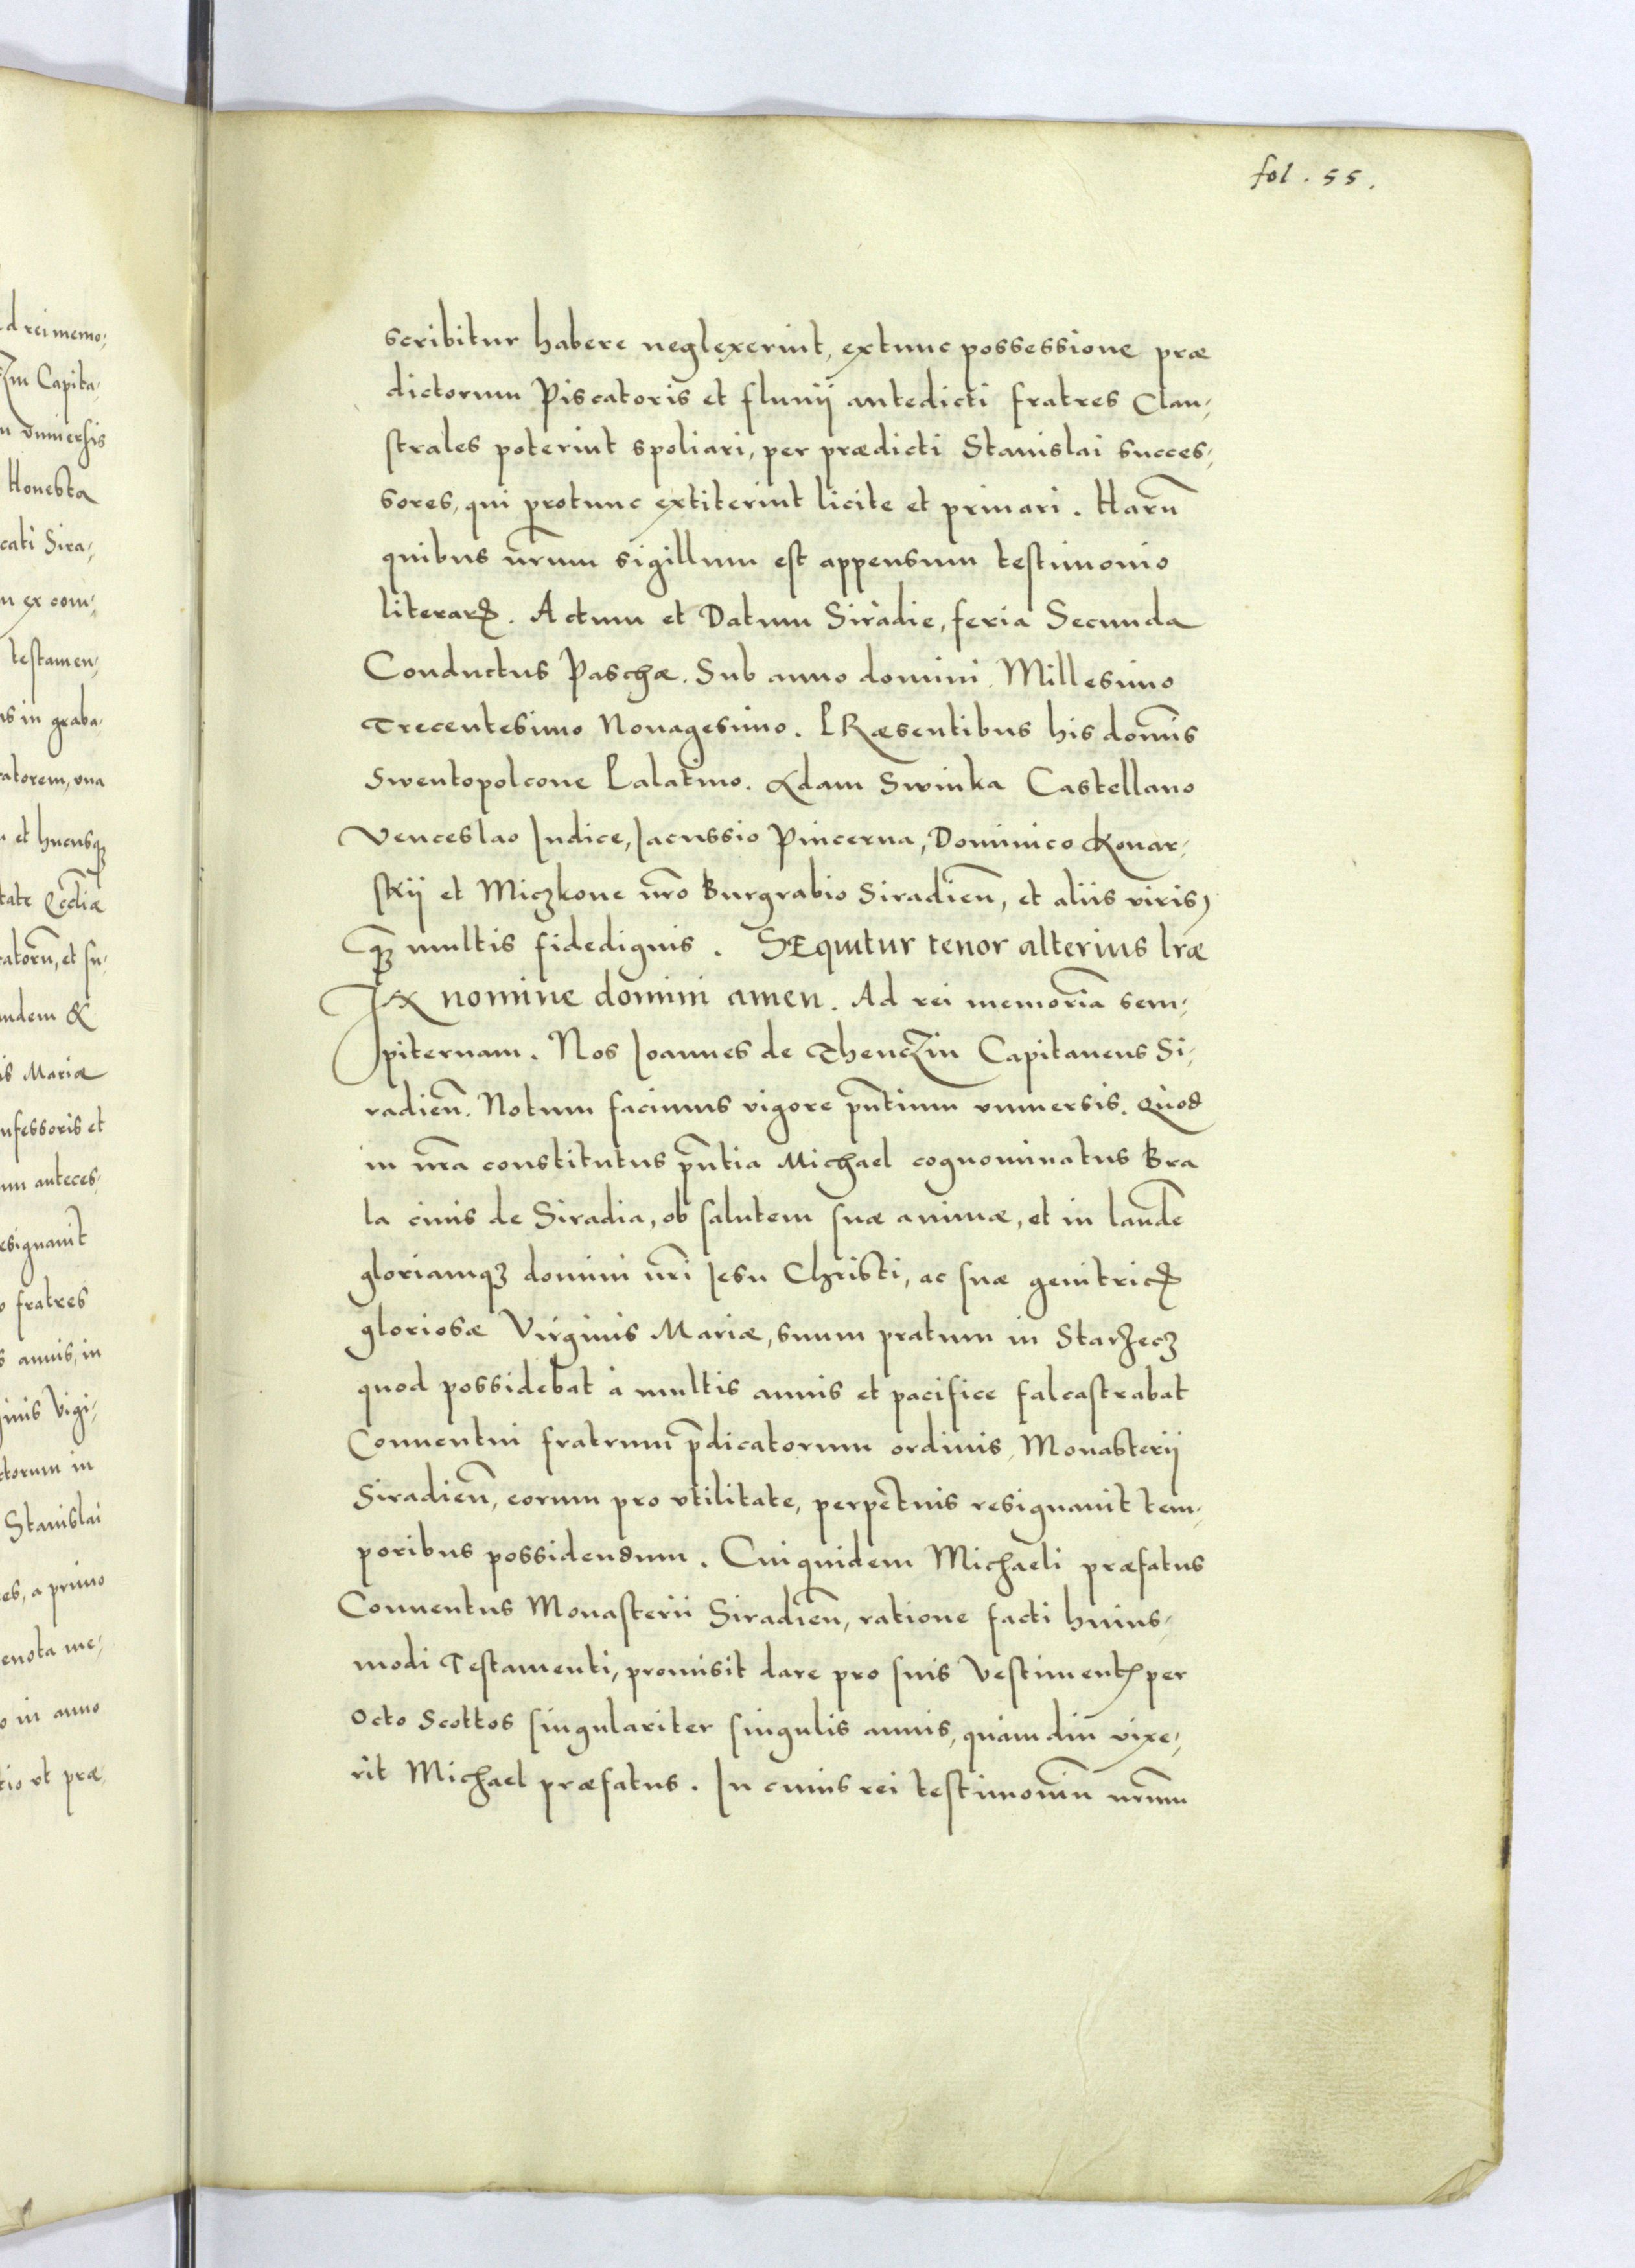 fol. 55.
scribitur habere neglexerint, extunc possessione præ
dictorum Piscatoris et fluuij antedicti fratres Clau-
strales poterint spoliari, per prædicti Stanislai succes-
sores, qui protunc extiterint licite et priuari. Harū
quibus nr̄um sigillum est appensum testimonio
literarꝝ. Actum et Datum Siradie, feria Secunda
Conductus Paschæ. Sub anno domini. Millesimo
Trecentesimo Nonagesimo. PRæsentibus his domīs
Swentopolcone Palatino. Adam Swinka Castellano
Venceslao Iudice, Iacussio Pincerna, Dominico Konar-
skij et Miczkone nr̄o Burgrabio Siradień, et aliis viris,
qꝫ multis fidedignis. SEquitur tenor alterius lr̄æ
IN nomine domini amen. Ad rei memoriā sem-
piternam. Nos Ioannes de Thenczin Capitaneus Si-
radień. Notum facimus vigore pn̄tium vniuersis. Quod
in nr̄a constitutus pn̄tia Michael cognominatus Bra
la ciuis de Siradia, ob salutem suæ animæ, et in laudē
gloriamqꝫ domini nr̄i Iesu Christi, ac suæ genitricꝭ
gloriosæ Virginis Mariæ, suum pratum in Starzecz
quod possidebat à multis annis et pacifice falcastrabat
Conuentui fratrum p̄dicatorum ordinis, Monasterij
Siradień, eorum pro vtilitate, perpetuis resignauit tem-
poribus possidendum. Cui quidem Michaeli præfatus
Conuentus Monasterii Siradień, ratione facti huius-
modi Testamenti, promisit dare pro suis Vestimentꝭ per
octo Scottos singulariter singulis annis, quàm diu vixe-
rit Michael præfatus. In cuius rei testimoniū nr̄um